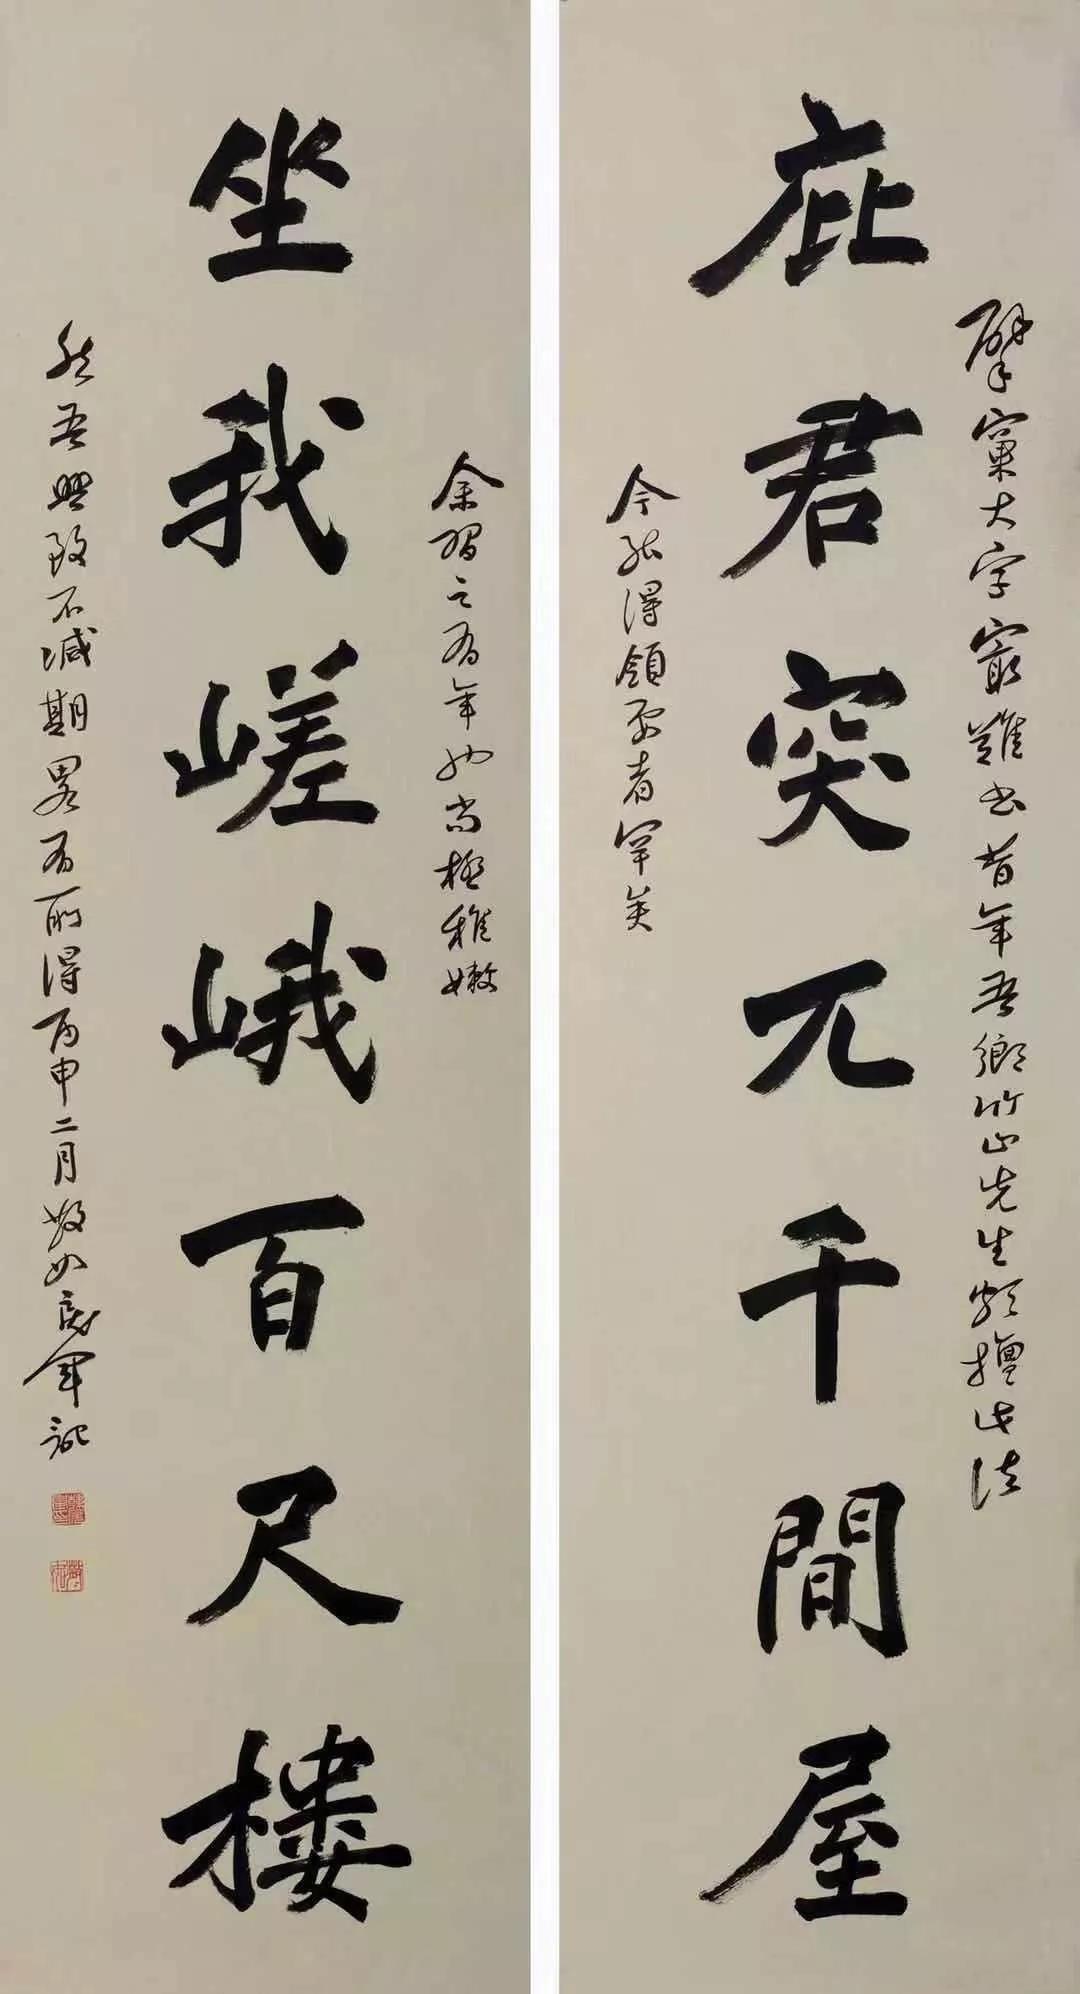 擘窠大字寂難書昔年吾鄉竹山先生頗擅此法
庇君突兀千間屋
今能得領要者罕矣
余習之有年也尚極稚嫩
坐我嵯峨百尺樓
然吾興致不減期略有所得丙申二月
軍記